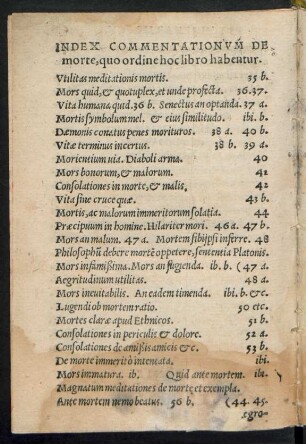 INDEX COMMENTATIONVM DE
morte, quo ordine hoc libro habentur.
Vtilitas meditationis mortis. 35 b.
Mors quid, & quotuplex, et unde profecta. 36.37.
Vita humana quid. 36 b. Senectus an optanda. 37 a.
Mortis symbolum mel. & eius similitudo. ibi. b.
Dæmonis conatus penes morituros. 38 a. 40 b.
Vitæ terminus incertus. 38 b. 39 a.
Morientium uia. Diaboli arma. 40
Mors bonorum, & malorum. 41
Consolationes in morte, & malis, 42
Vita sine cruce quæ. 43 b.
Mortis, ac malorum immeritorum solatia. 44
Præcipuum in homine. Hilariter mori. 46 a. 47 b.
Mors an malum. 47 a. Mortem sibijpsi inferre. 48
Philosophū debere mortē oppetere, sententia Platonis.
Mors infamißima. Mors an fugienda. ib. b. (47 a.
Aegritudinum utilitas. 48 a.
Mors ineuitabilis. An eadem timenda. ibi. b. &c.
Lugendi ob mortem ratio. 50 etc.
Mortes claræ apud Ethnicos. 51 b.
Consolationes in periculis & dolore. 52 a.
Consolationes de amißis amicis & c. 53 b.
De morte immeritò intentata. ibi.
Mors immatura. ib. Quid ante mortem. ibi.
Magnatum meditationes de morte et exempla.
Ante mortem nemo beatus. 56 b. (44. 45.
ægro-